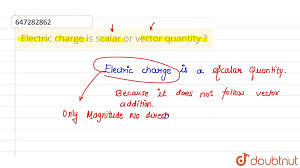 647282862
Electric charge is scalar or vector quantity?
Electric charge is a scalar quantity.
Because it does not follow vector
addition.
Only Magnitude No direct
doubtnut